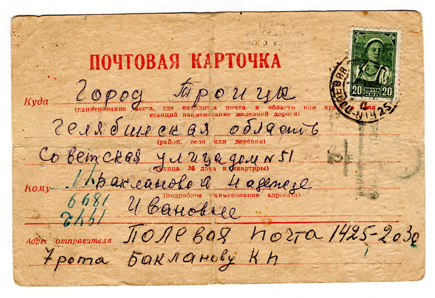 ПОЧТОВАЯ КАРТОЧКА
20 20
Куда Город Троицк
(наименование места, где находится почта и области или края, а для станций наименование железной дороги)
Челябинская область
(район, село или деревня)
Советская улица дом №51
(улица, № дома и квартиры)
Кому Баклановой Надежде
Ивановне
(подробное наименование адресата)
Адрес отправителя Полевая почта 1425-203с
7 рота Бакланову КН